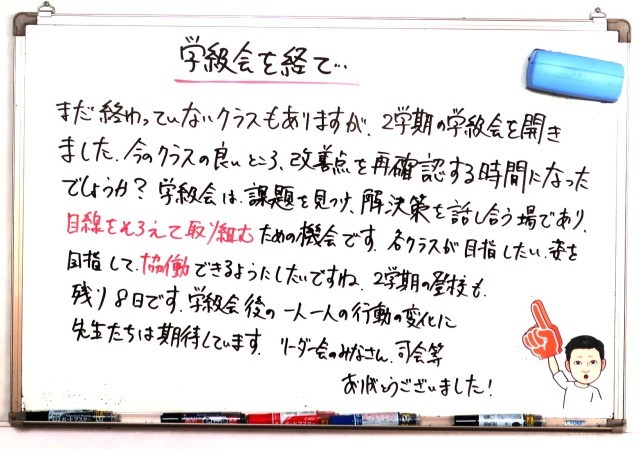 学級会を経て…
まだ終わっていないクラスもありますが、2学期の学級会を開き
ました。今のクラスの良いところ、改善点を再確認する時間になった
でしょうか？学級会は、課題を見つけ、解決策を話し合う場であり、
目線をそろえて取り組むための機会です。各クラスが目指したい姿を
目指して、協働できるようにしたいですね。2学期の登校も、
残り8日です。学級会後の一人一人の行動の変化に
先生たちは期待しています。リーダー会のみなさん、司会等
ありがとうございました！